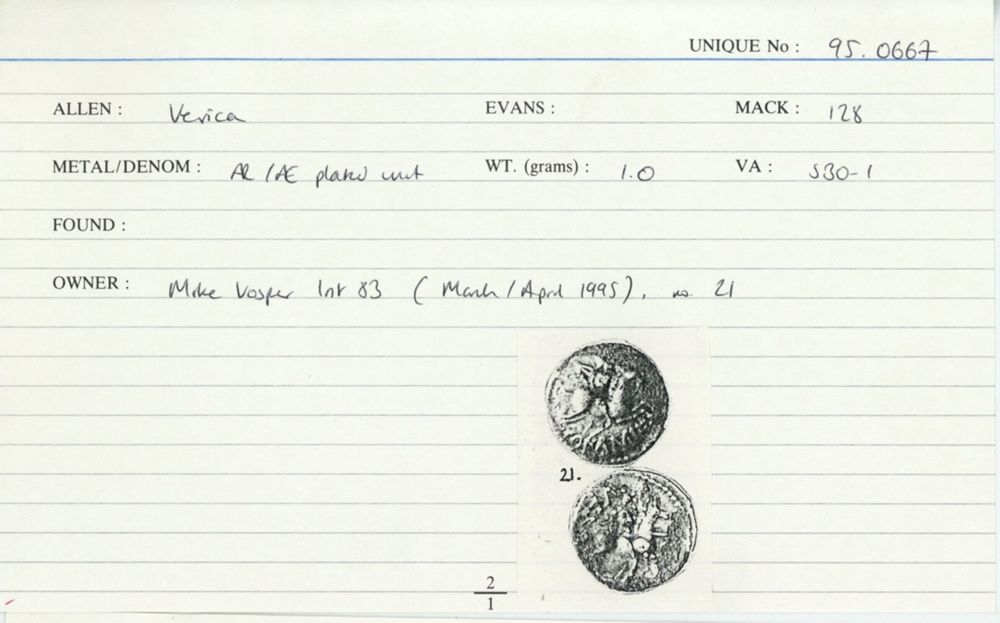 UNIQUE No : 95.0667
ALLEN : Verica EVANS : MACK : 128
METAL/DENOM : AR/AE plated unit WT. (grams) : 1.0 VA : 530-1
FOUND :
OWNER : Mike Vosper List 83 (March/April 1995), no. 21
21.
2
1